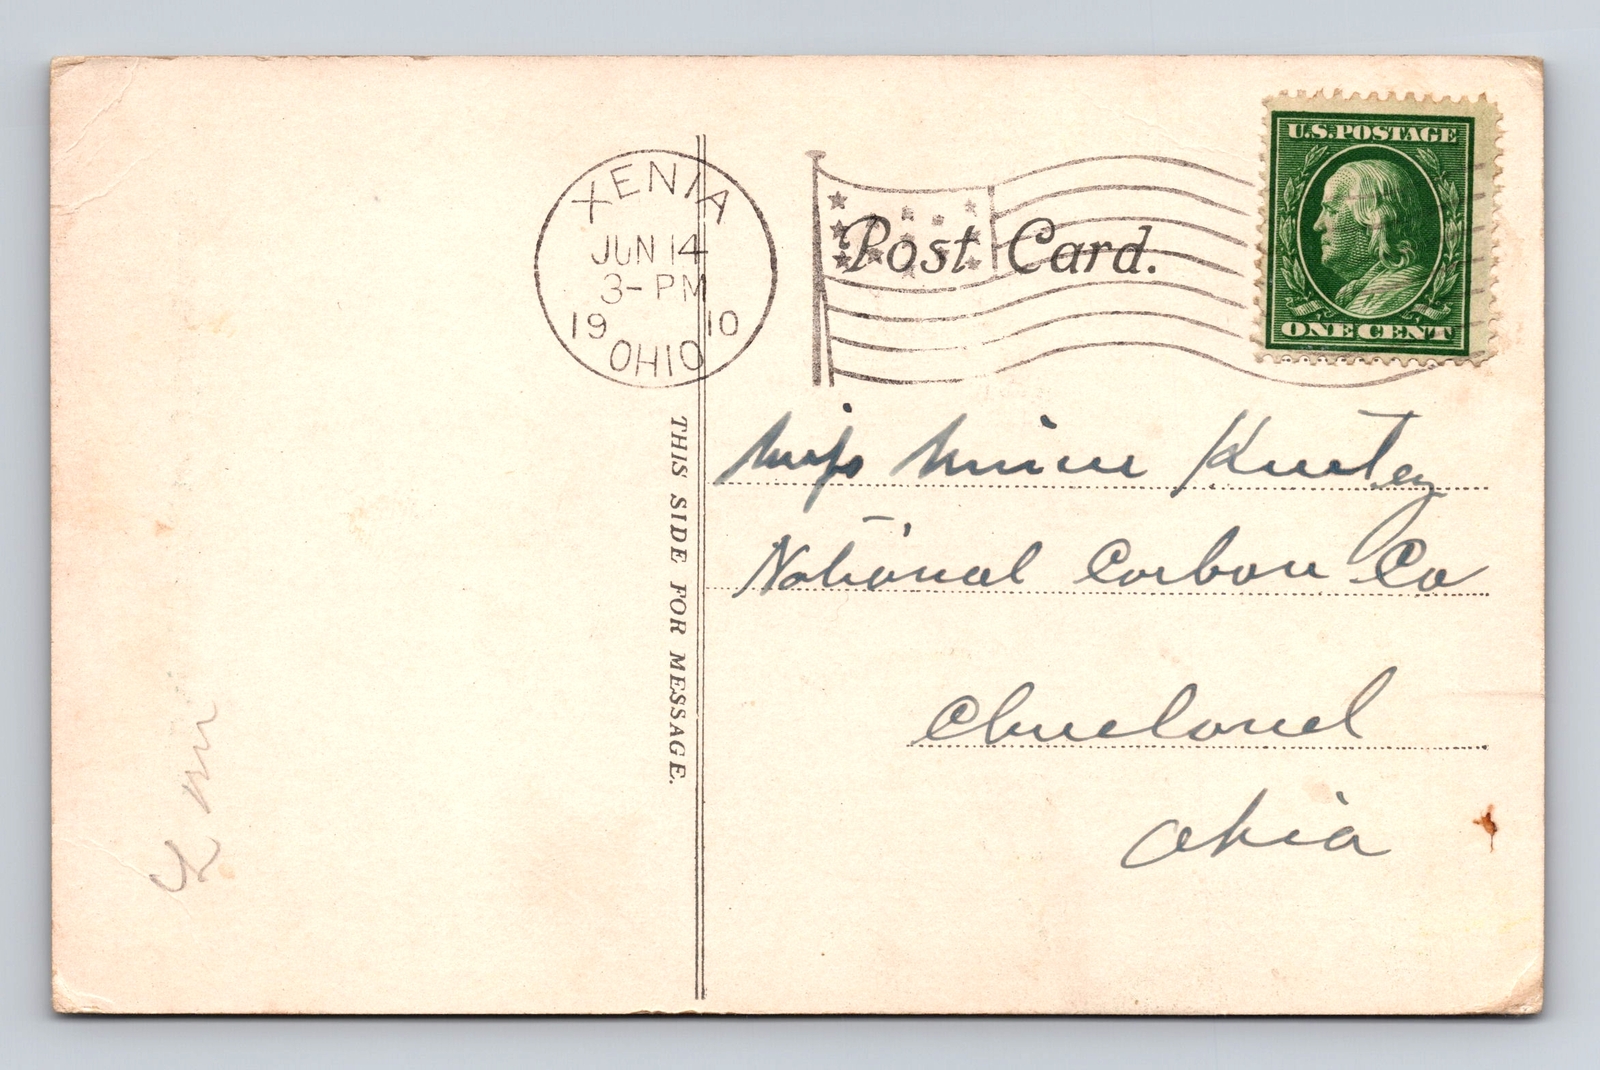 XENIA
JUN 14
3-PM
19 10
OHIO
Post Card.
U.S. POSTAGE
ONE CENT
THIS SIDE FOR MESSAGE.
Miss Minnie
National Carbon Co
Cleveland
Ohio